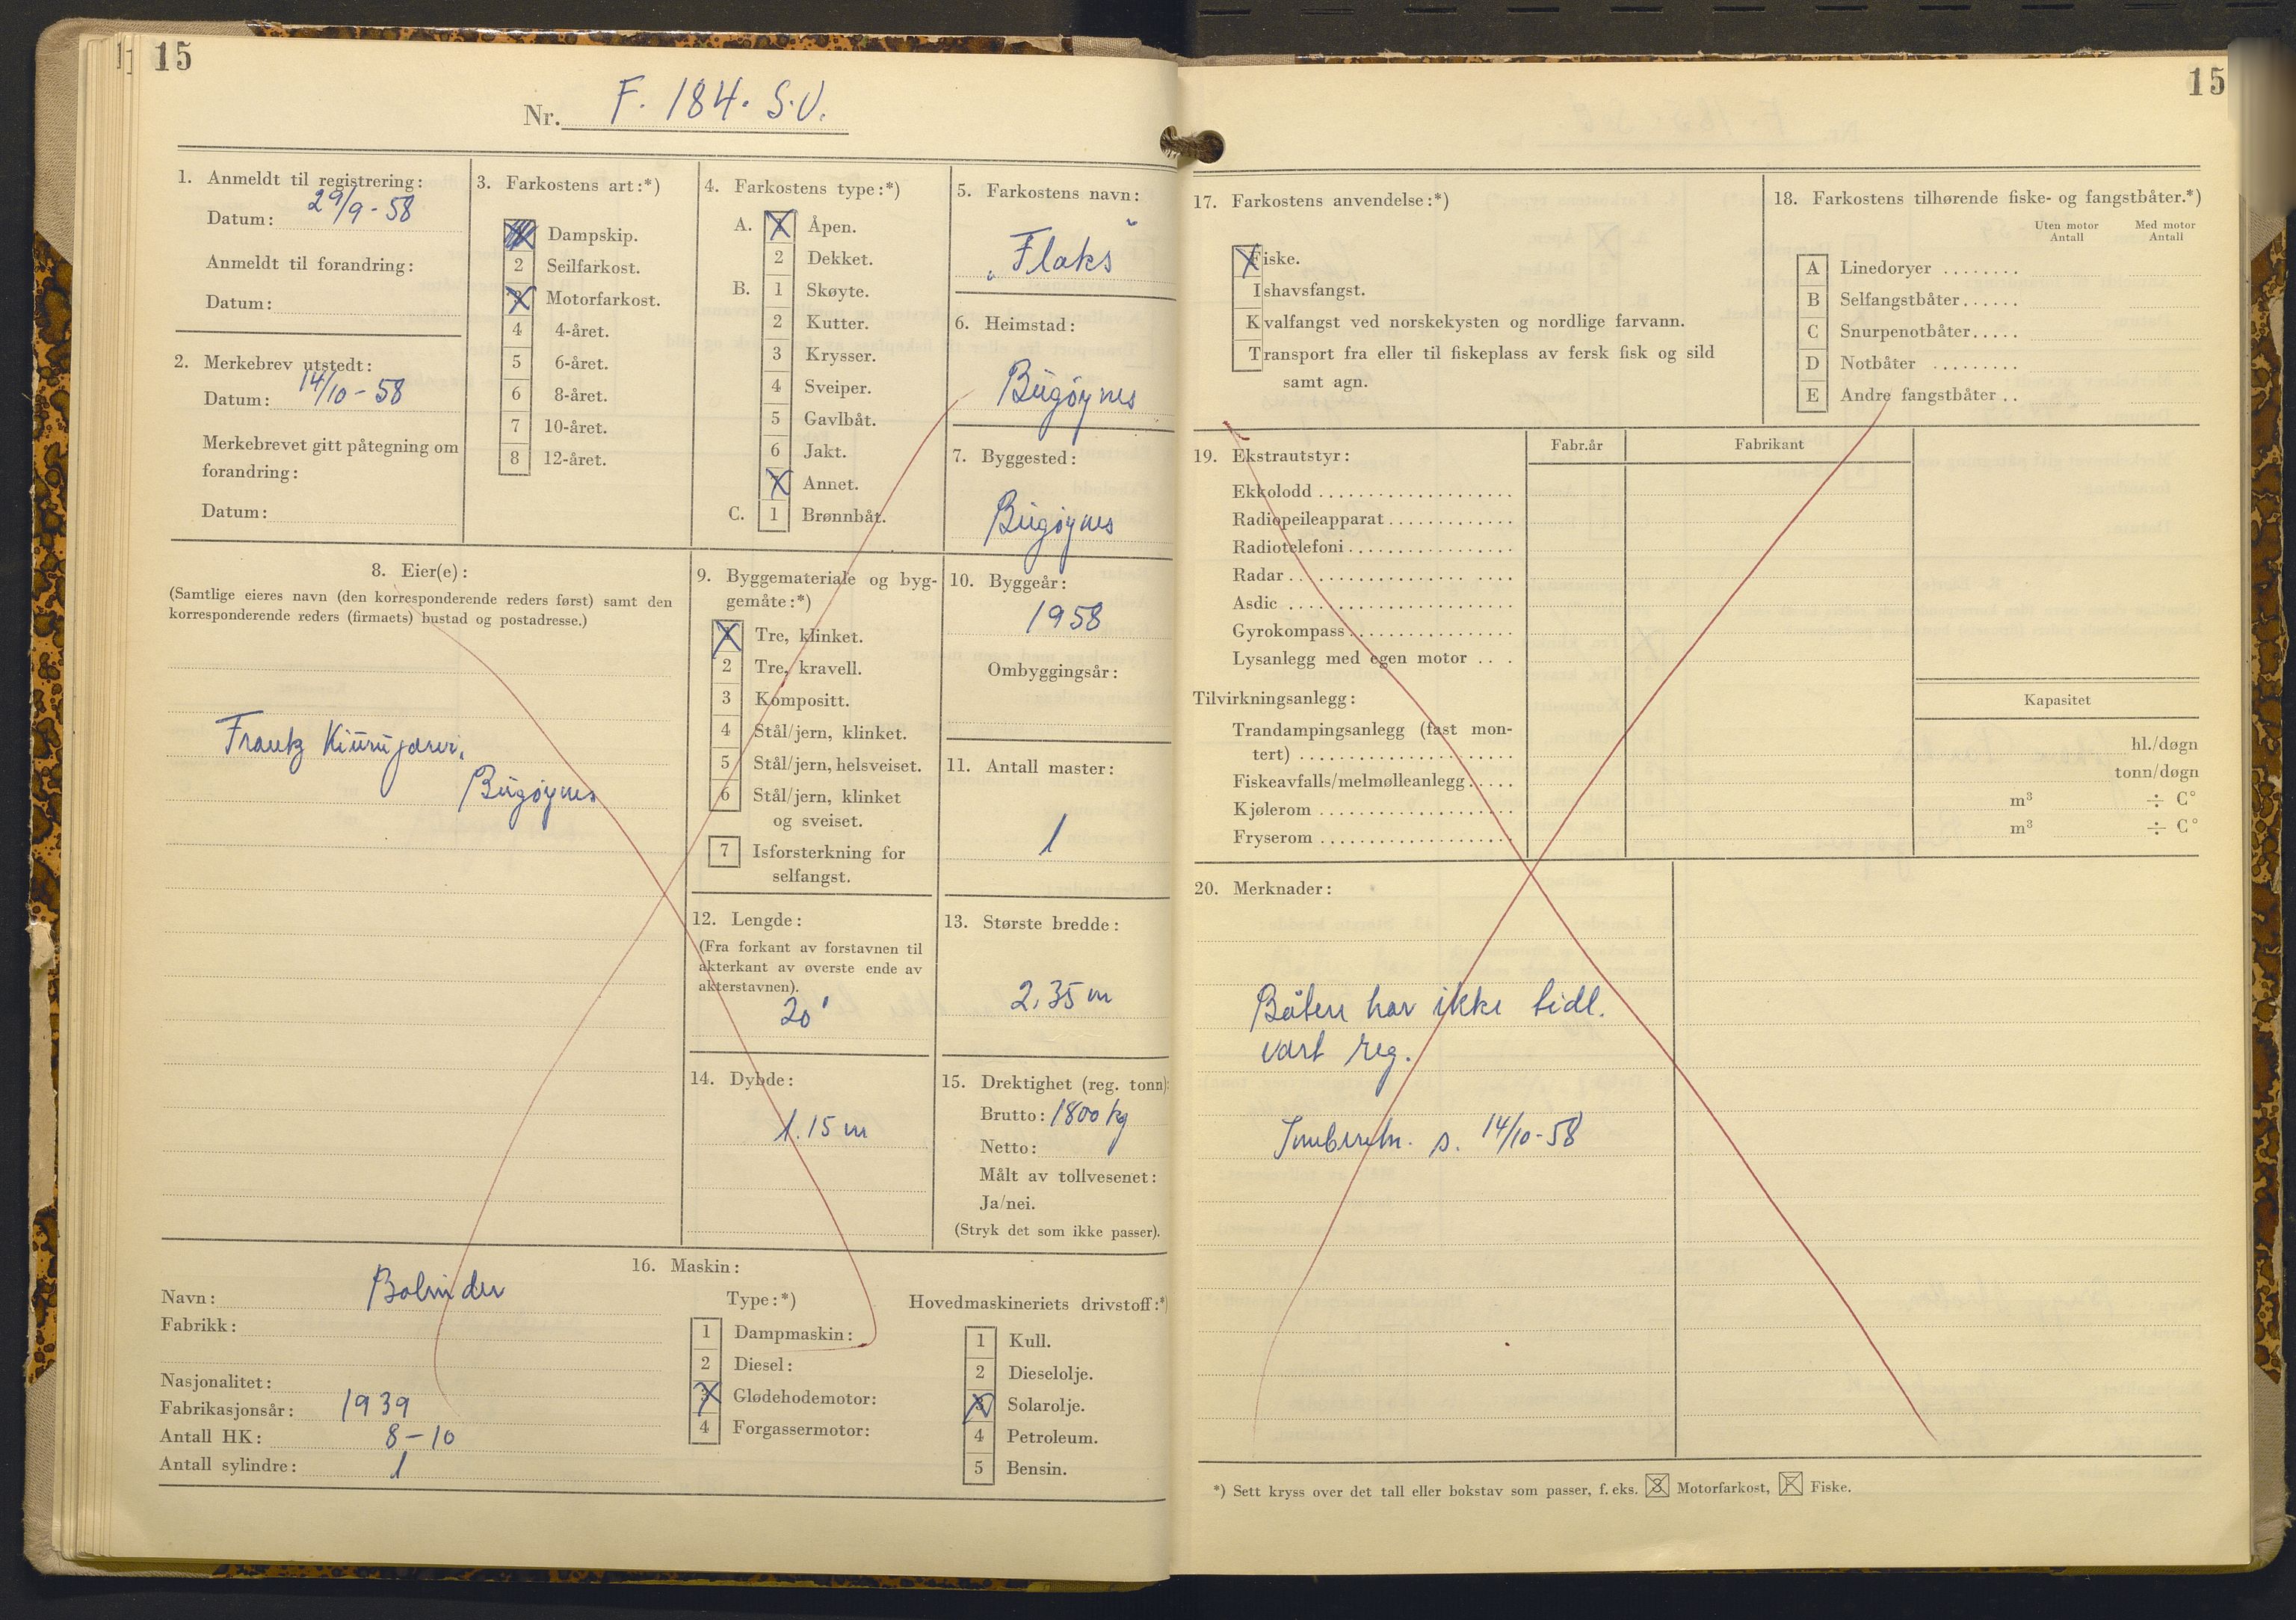 15
Nr. F. 184. S.V.
1. Anmeldt til registrering:
Datum: 29/9-58
Anmeldt til forandring:
Datum:
2. Merkebrev utstedt:
Datum: 14/10-58
Merkebrevet gitt påtegning om
forandring:
Datum:
3. Farkostens art:*)
Dampskip.
2 Seilfarkost.
3 Motorfarkost.
4 4-året.
5 6-året.
6 8-året.
7 10-året.
8 12-året.
4. Farkostens type:*)
A. 1 Åpen.
2 Dekket.
B. 1 Skøyte.
2 Kutter.
3 Krysser.
4 Sveiper.
5 Gavlbåt.
6 Jakt.
Annet.
C. 1 Brønnbåt.
5. Farkostens navn:
„Flaks"
6. Heimstad:
Bugøynes
7. Byggested:
Bugøynes
8. Eier(e):
(Samtlige eieres navn (den korresponderende reders først) samt den
korresponderende reders (firmaets) bustad og postadresse.)
Bugøynes
9. Byggemateriale og byg-
gemåte:*)
1 Tre, klinket.
2 Tre, kravell.
3 Kompositt.
4 Stål/jern, klinket.
5 Stål/jern, helsveiset.
6 Stål/jern, klinket
og sveiset.
7 Isforsterkning for
selfangst.
10. Byggeår:
1958
Ombyggingsår:
11. Antall master:
1
12. Lengde:
(Fra forkant av forstavnen til
akterkant av øverste ende av
akterstavnen).
20'
13. Største bredde:
2,35 m
14. Dybde:
1.15 m
15. Drektighet (reg. tonn):
Brutto: 1800 kg
Netto:
Målt av tollvesenet:
Ja/nei.
(Stryk det som ikke passer).
16. Maskin:
Navn: Bolinder
Fabrikk:
Nasjonalitet:
Fabrikasjonsår: 1939
Antall HK: 8-10
Antall sylindre: 1
Type:*)
1 Dampmaskin:
2 Diesel:
3 Glødehodemotor:
4 Forgassermotor:
Hovedmaskineriets drivstoff:*)
1 Kull.
2 Dieselolje.
3 Solarolje.
4 Petroleum.
5 Bensin.
15
17. Farkostens anvendelse:*)
Fiske.
Ishavsfangst.
Kvalfangst ved norskekysten og nordlige farvann.
Transport fra eller til fiskeplass av fersk fisk og sild
samt agn.
18. Farkostens tilhørende fiske- og fangstbåter.*)
Uten motor Med motor
Antall Antall
A Linedoryer ........
B Selfangstbåter......
C Snurpenotbåter.....
D Notbåter .........
E Andre fangstbåter ..
19. Ekstrautstyr: Fabr.år Fabrikant
Ekkolodd
Radiopeileapparat
Radiotelefoni
Radar
Asdic
Gyrokompass
Lysanlegg med egen motor ...
Tilvirkningsanlegg: Kapasitet
Trandampingsanlegg (fast mon-
tert) hl./døgn
Fiskeavfalls/melmølleanlegg..... tonn/døgn
Kjølerom m³ ÷ C°
Fryserom m³ ÷ C°
20. Merknader:
Båten har ikke tidl.
vært reg.
s. 14/10-58
*) Sett kryss over det tall eller bokstav som passer, f. eks. 3 Motorfarkost, F Fiske.